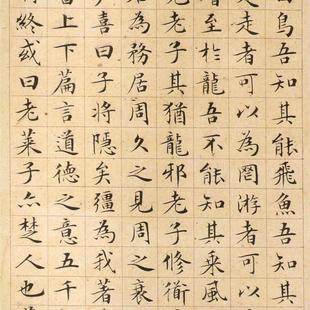 鳥吾知其能飛魚吾知其
走者可以為罔游者可以
至於龍吾不能知其乘風
老子其猶龍邪老子修衜
名為務居周久之見周之衰
喜曰子將隱矣彊為我著
上下篇言道德之意五千
終或曰老萊子亦楚人也